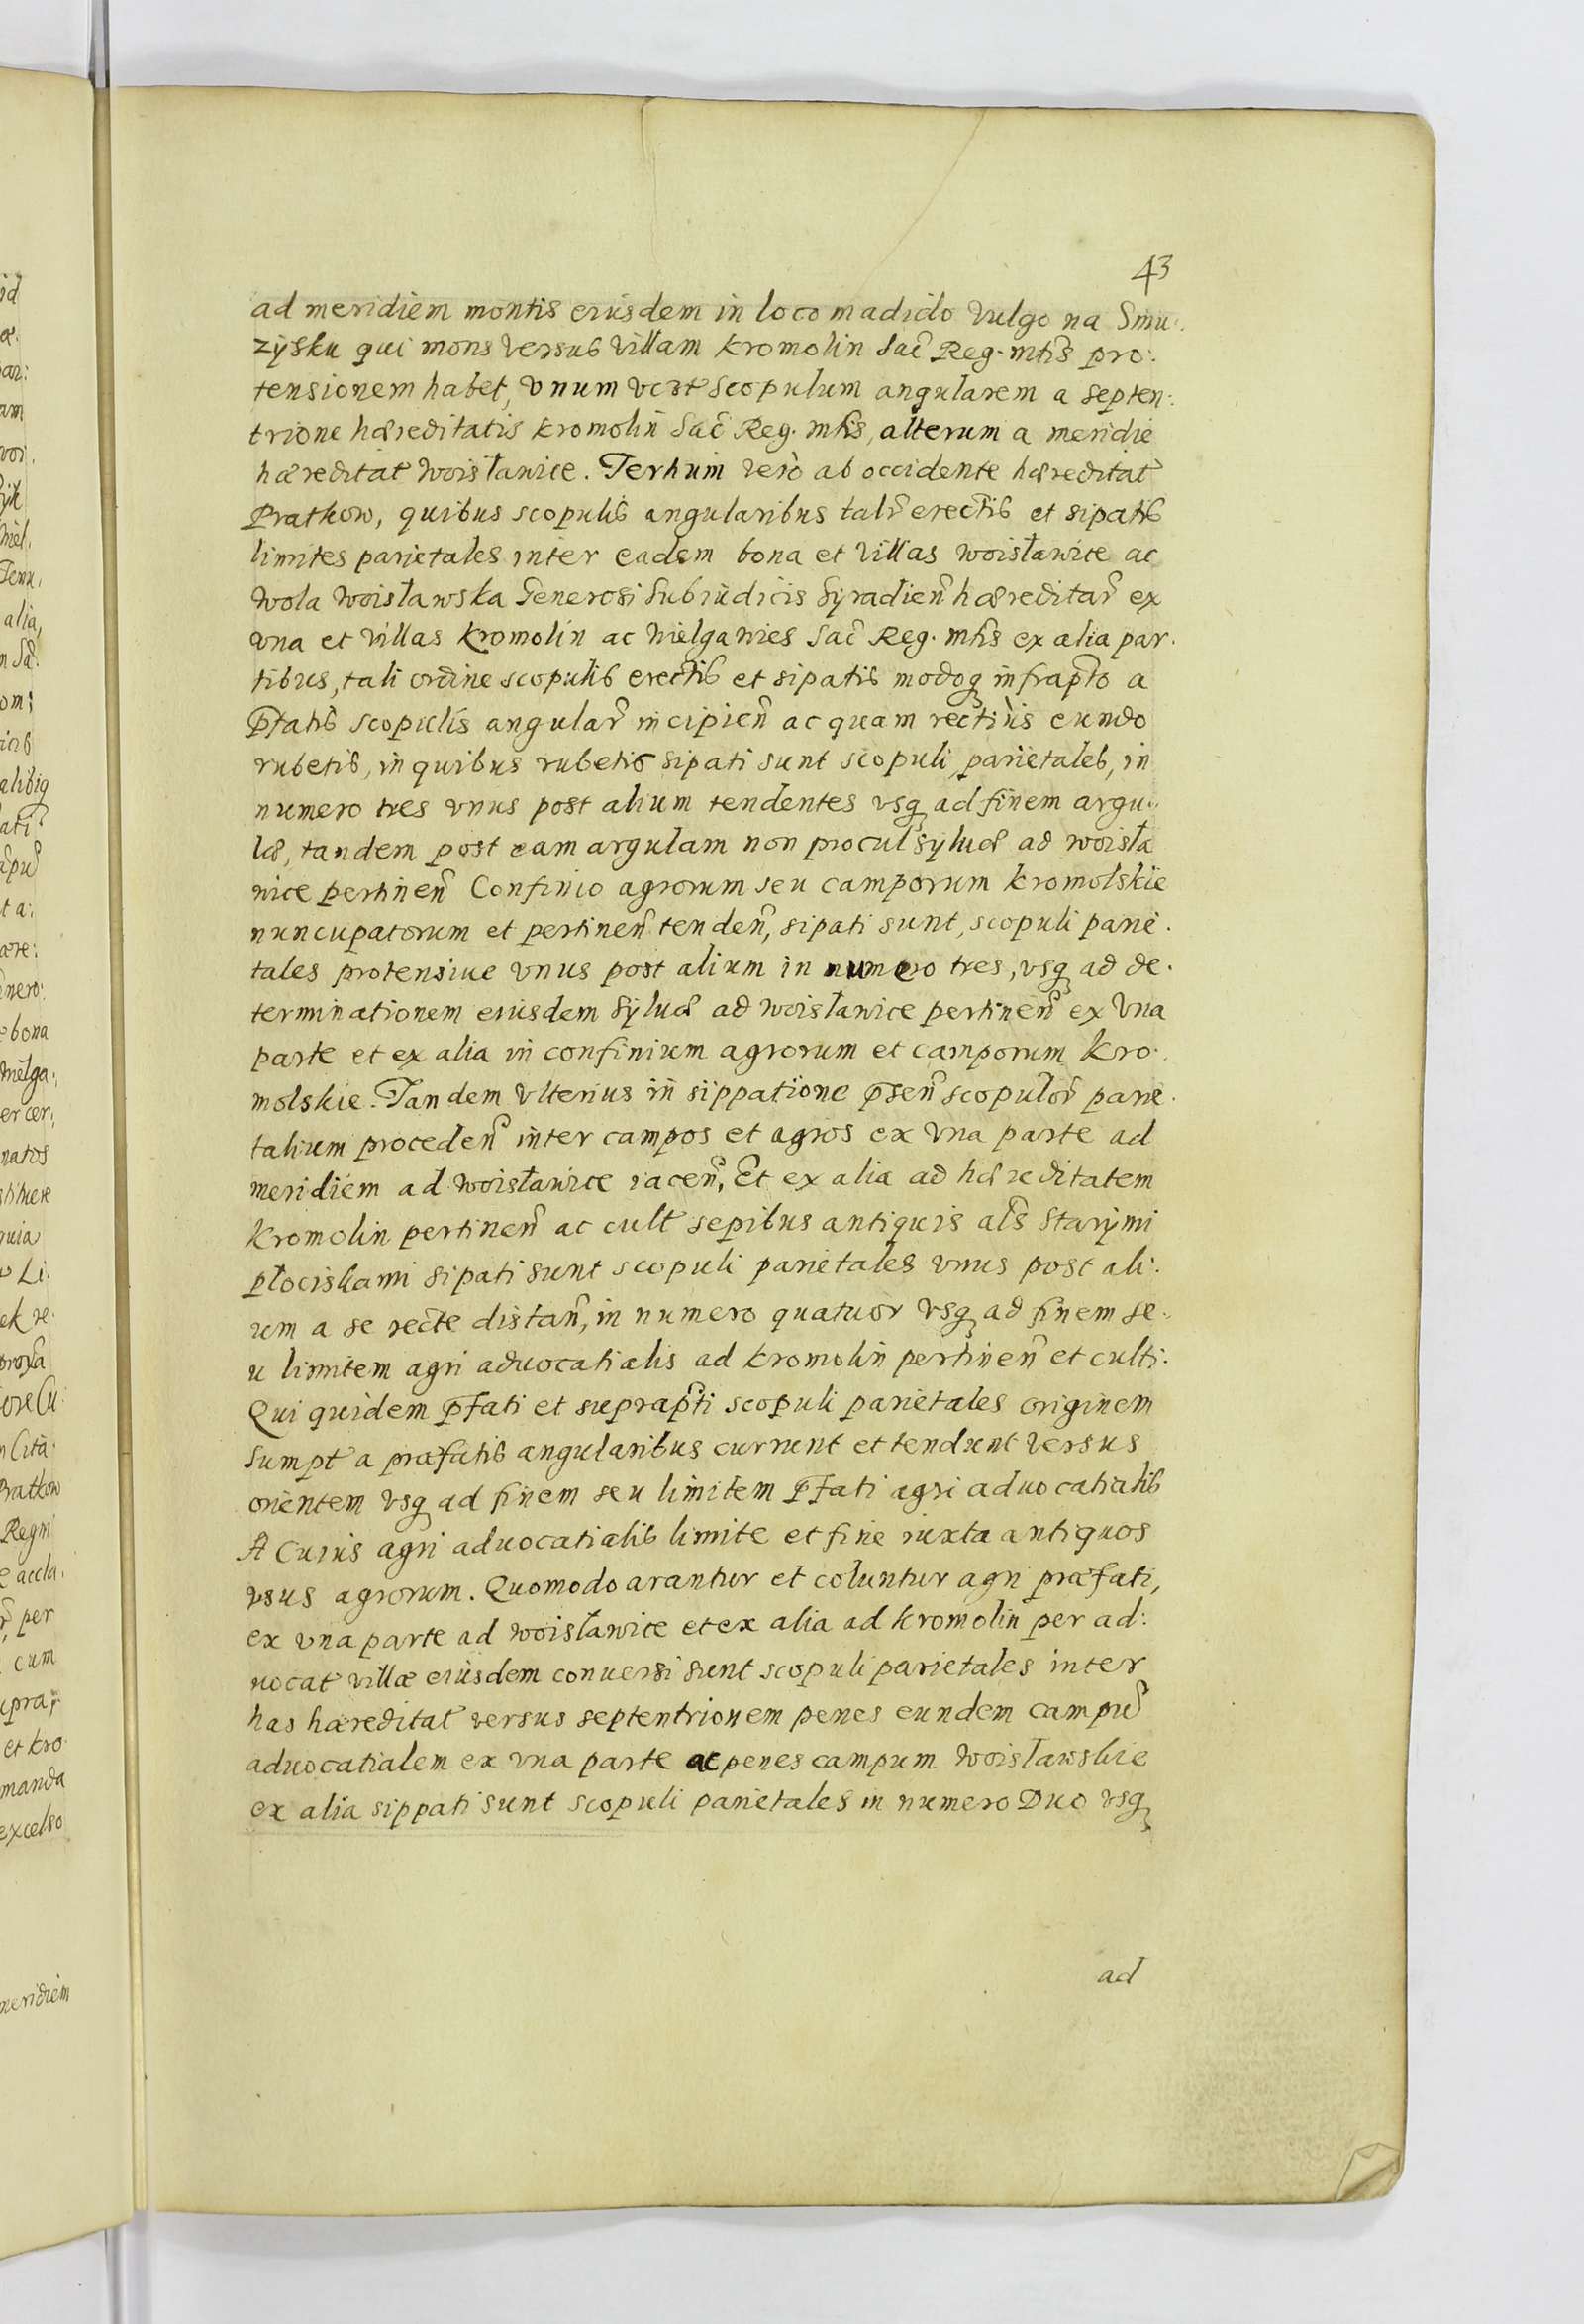 43
ad meridiem montis eiusdem in loco madido vulgo na Smu:
zÿsku qui mons versus villam Kromolin Sac̃ Reg. mtis pro:
tensionem habet, vnum vert̃ scopulum angularem a septen:
trione hæreditatis Kromolin Sac̃ Reg. mtis, alterum a meridie
hæreditat̃ Woisławice. Tertium vero ab occidente hæreditat̃
Pratkow, quibus scopulis angularibus talr̃ erectis et sipatis
limites parietales inter eadem bona et villas Woisławice ac
Wola Woisławska Generosi Subiudicis Syradien̄ hæreditar̃ ex
vna et villas Kromolin ac Mielga wies Sac̃ Reg. mtis ex alia par:
tibus, tali ordine scopulis erectis et sipatis modoq̨ infrap̃to a
p̃fatis scopulis angular̃ incipien̄ ac quam rectius eundo
rubetis, in quibus rubetis sipati sunt scopuli parietales, in
numero tres vnus post alium tendentes vsq̨ ad finem argu:
læ, tandem post eam argulam non procul syluæ ad Woisła
wice pertinen̄ Confinio agrorum seu camporum Kromolskie
nuncupatorum et pertinen̄ tenden̄, sipati sunt, scopuli parie:
tales protensiue vnus post alium in numero tres, vsq̨ ad de:
terminationem eiusdem syluæ ad Woisławice pertinen̄ ex vna
parte et ex alia in confinium agrorum et camporum Kro:
molskie. Tandem vlterius in sippatione p̃sen̄ scopulor̃ parie:
talium proceden̄ inter campos et agros ex vna parte ad
meridiem ad Woisławice iacen̄, Et ex alia ad hæreditatem
Kromolin pertinen̄ ac cult̃ sepibus antiquis al̃s Starÿmi
płociskami sipati sunt scopuli parietales vnus post ali:
um a se recte distan̄, in numero quatuor vsq̨ ad finem se:
u limitem agri aduocatialis ad Kromolin pertinen̄ et culti:
Qui quidem p̃fati et suprap̃ti scopuli parietales originem
sumpt̃ a præfatis angularibus currunt et tendunt versus
orientem vsq̨ ad finem seu limitem p̃fati agri aduocatialis
A Cuius agri aduocatialis limite et fine iuxta antiquos
vsus agrorum. Quomodo arantur et coluntur agri præfati,
ex vna parte ad Woisławice et ex alia ad Kromolin per ad:
uocat̃ villæ eiusdem conuersi sunt scopuli parietales inter
has hæreditat̃ versus septentrionem penes eundem campũ
aduocatialem ex vna parte ac penes campum Woisławskie
ex alia sippati sunt scopuli parietales in numero Duo vsq̨
ad